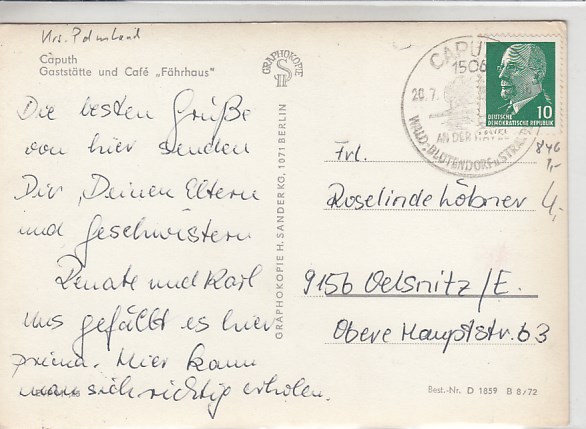 Krs. Potsdam Land
Caputh
Gaststätte und Café „Fährhaus"
GRAPHOKOPIE
Die besten Grüße
von hier senden
Dir, Deinen Eltern
und Geschwistern
Renate und Karl
Uns gefällt es hier
prima. Hier kann
man sich richtig erholen.
GRAPHOKOPIE H. SANDERKO, 1071 BERLIN
CAPUTH
1506
20.7.
AN DER HAVEL
WALD-BLÜTENDORF u. STRAND
10
DEUTSCHE
DEMOKRATISCHE REPUBLIK
846
1,-
4,-
Frl.
Roselinde Löbner
9156 Oelsnitz/E.
Obere Hauptstr. 63
Best.-Nr. D 1859 B 8/72